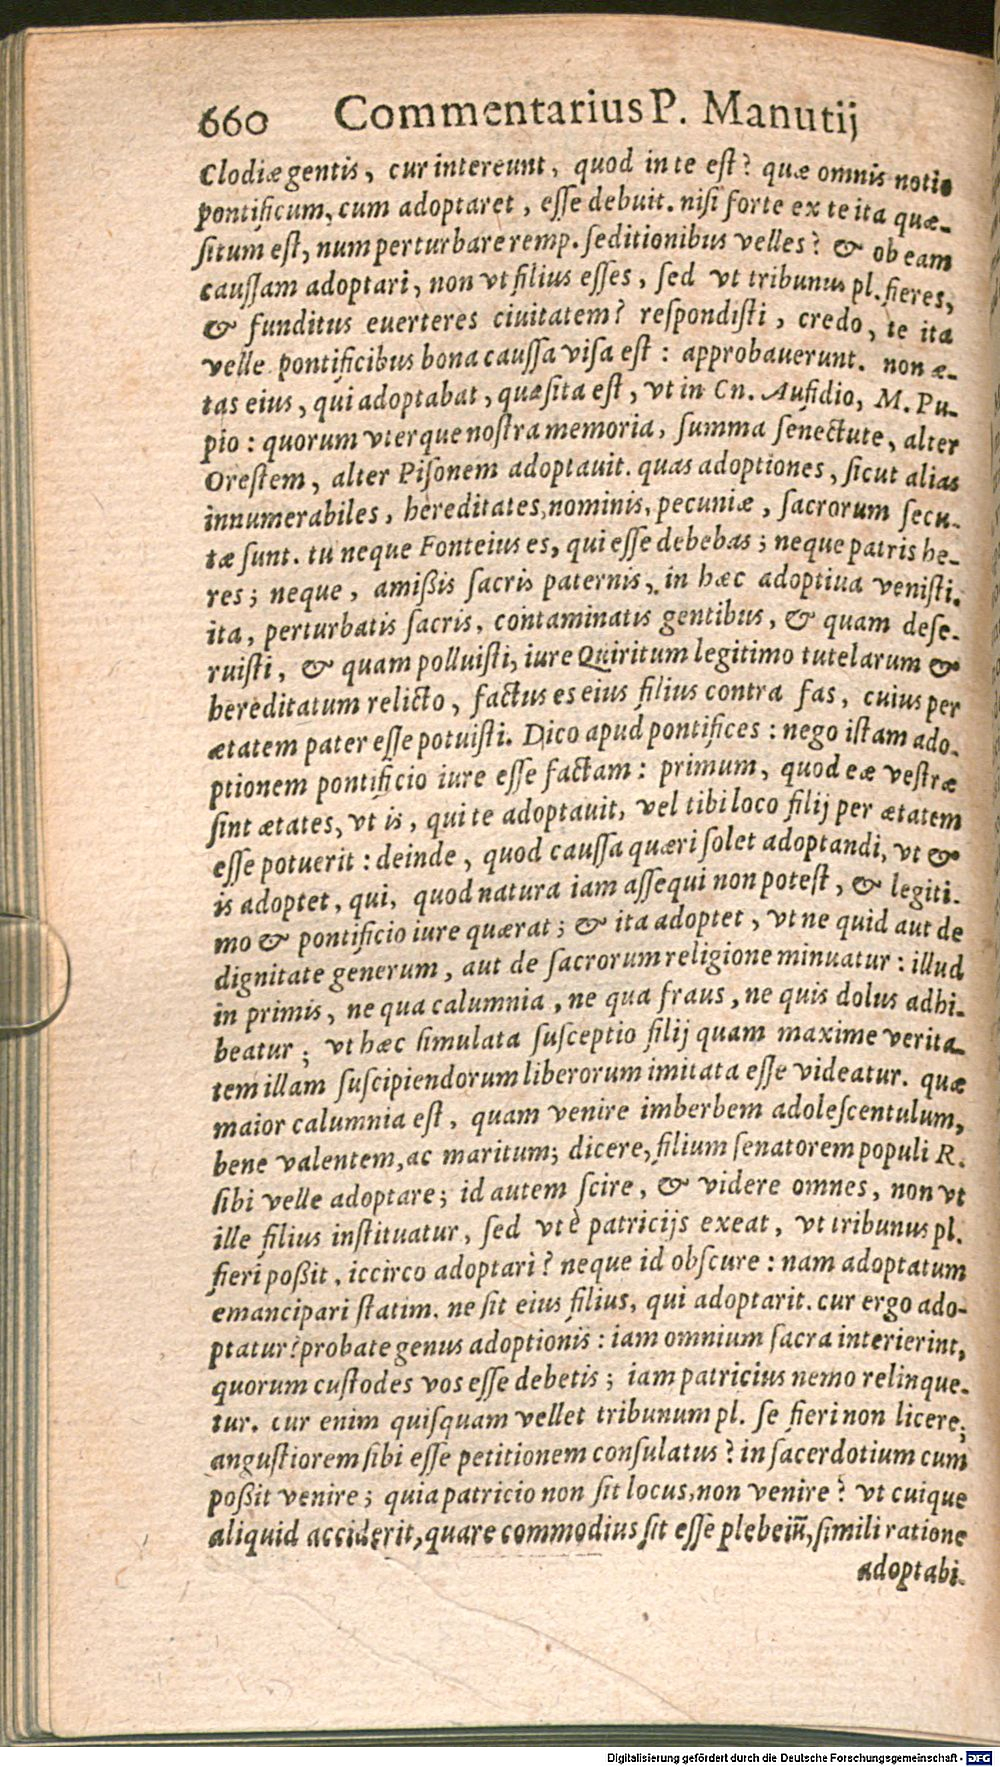 660 Commentarius P. Manutij
Clodiæ gentis, cur intereunt, quod in te est? quæ omnis notio
pontificum, cum adoptaret, esse debuit. nisi forte ex te ita quæ-
situm est, num perturbare remp. seditionibus velles? & ob eam
caussam adoptari, non vt filius esses, sed vt tribunus pl. fieres,
& funditus euerteres ciuitatem? respondisti, credo, te ita
velle. pontificibus bona caussa visa est: approbauerunt. non æ-
tas eius, qui adoptabat, quæsita est, vt in Cn. Aufidio, M. Pu-
pio: quorum vterque nostra memoria, summa senectute, alter
Orestem, alter Pisonem adoptauit. quas adoptiones, sicut alias
innumerabiles, hereditates, nominis, pecuniæ, sacrorum secu-
tæ sunt. tu neque Fonteius es, qui esse debebas; neque patris he-
res; neque, amißis sacris paternis, in hæc adoptiua venisti.
ita, perturbatis sacris, contaminatis gentibus, & quam dese-
ruisti, & quam polluisti, iure Quiritum legitimo tutelarum &
hereditatum relicto, factus es eius filius contra fas, cuius per
ætatem pater esse potuisti. Dico apud pontifices: nego istam ado-
ptionem pontificio iure esse factam: primum, quod eæ vestræ
sint ætates, vt is, qui te adoptauit, vel tibi loco filij per ætatem
esse potuerit: deinde, quod caussa quæri solet adoptandi, vt &
is adoptet, qui, quod natura iam assequi non potest, & legiti-
mo & pontificio iure quærat; & ita adoptet, vt ne quid aut de
dignitate generum, aut de sacrorum religione minuatur: illud
in primis, ne qua calumnia, ne qua fraus, ne quis dolus adhi-
beatur; vt hæc simulata susceptio filij quam maxime verita-
tem illam suscipiendorum liberorum imitata esse videatur. quæ
maior calumnia est, quam venire imberbem adolescentulum,
bene valentem, ac maritum; dicere, filium senatorem populi R.
sibi velle adoptare; id autem scire, & videre omnes, non vt
ille filius instituatur, sed vt è patricijs exeat, vt tribunus pl.
fieri poßit, iccirco adoptari? neque id obscure: nam adoptatum
emancipari statim. ne sit eius filius, qui adoptarit. cur ergo ado-
ptatur? probate genus adoptionis: iam omnium sacra interierint,
quorum custodes vos esse debetis; iam patricius nemo relinque-
tur. cur enim quisquam vellet tribunum pl. se fieri non licere;
angustiorem sibi esse petitionem consulatus? in sacerdotium cum
poßit venire; quia patricio non sit locus, non venire? vt cuique
aliquid acciderit, quare commodius sit esse plebeiũ, simili ratione
adoptabi-
Digitalisierung gefördert durch die Deutsche Forschungsgemeinschaft - DFG